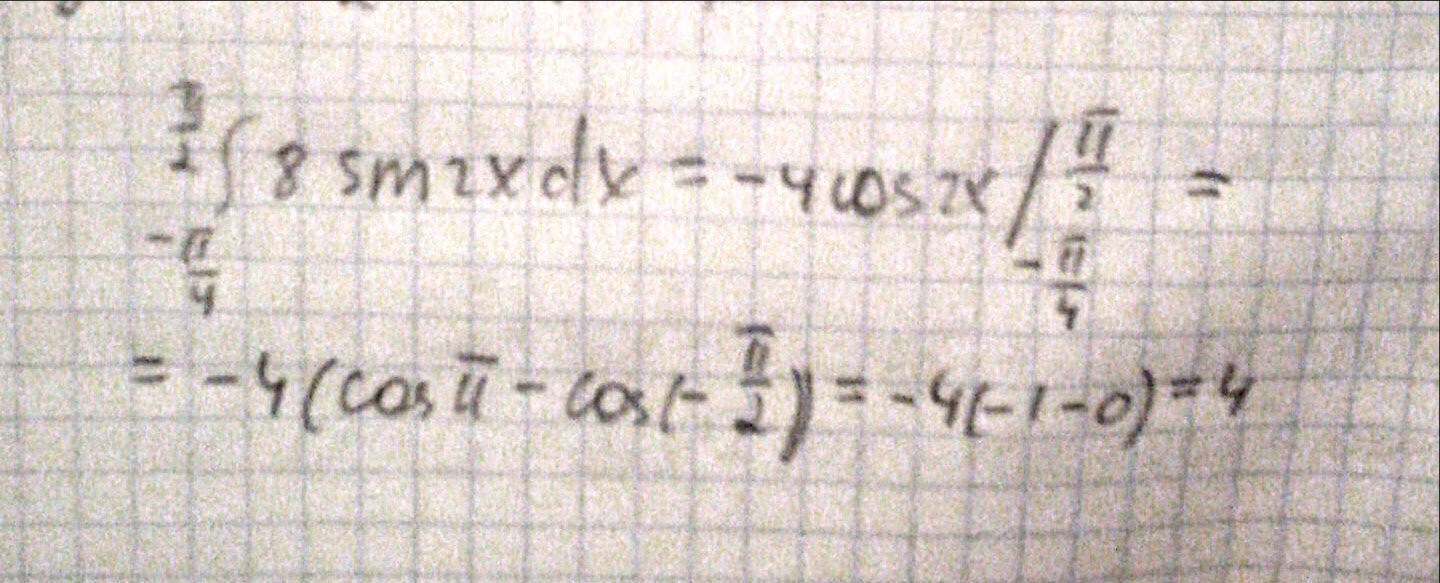 π/2 ∫ -π/4 8 sin2x dx = -4cos2x / π/2 -π/4 =
= -4(cosπ - cos(-π/2)) = -4(-1-0) = 4